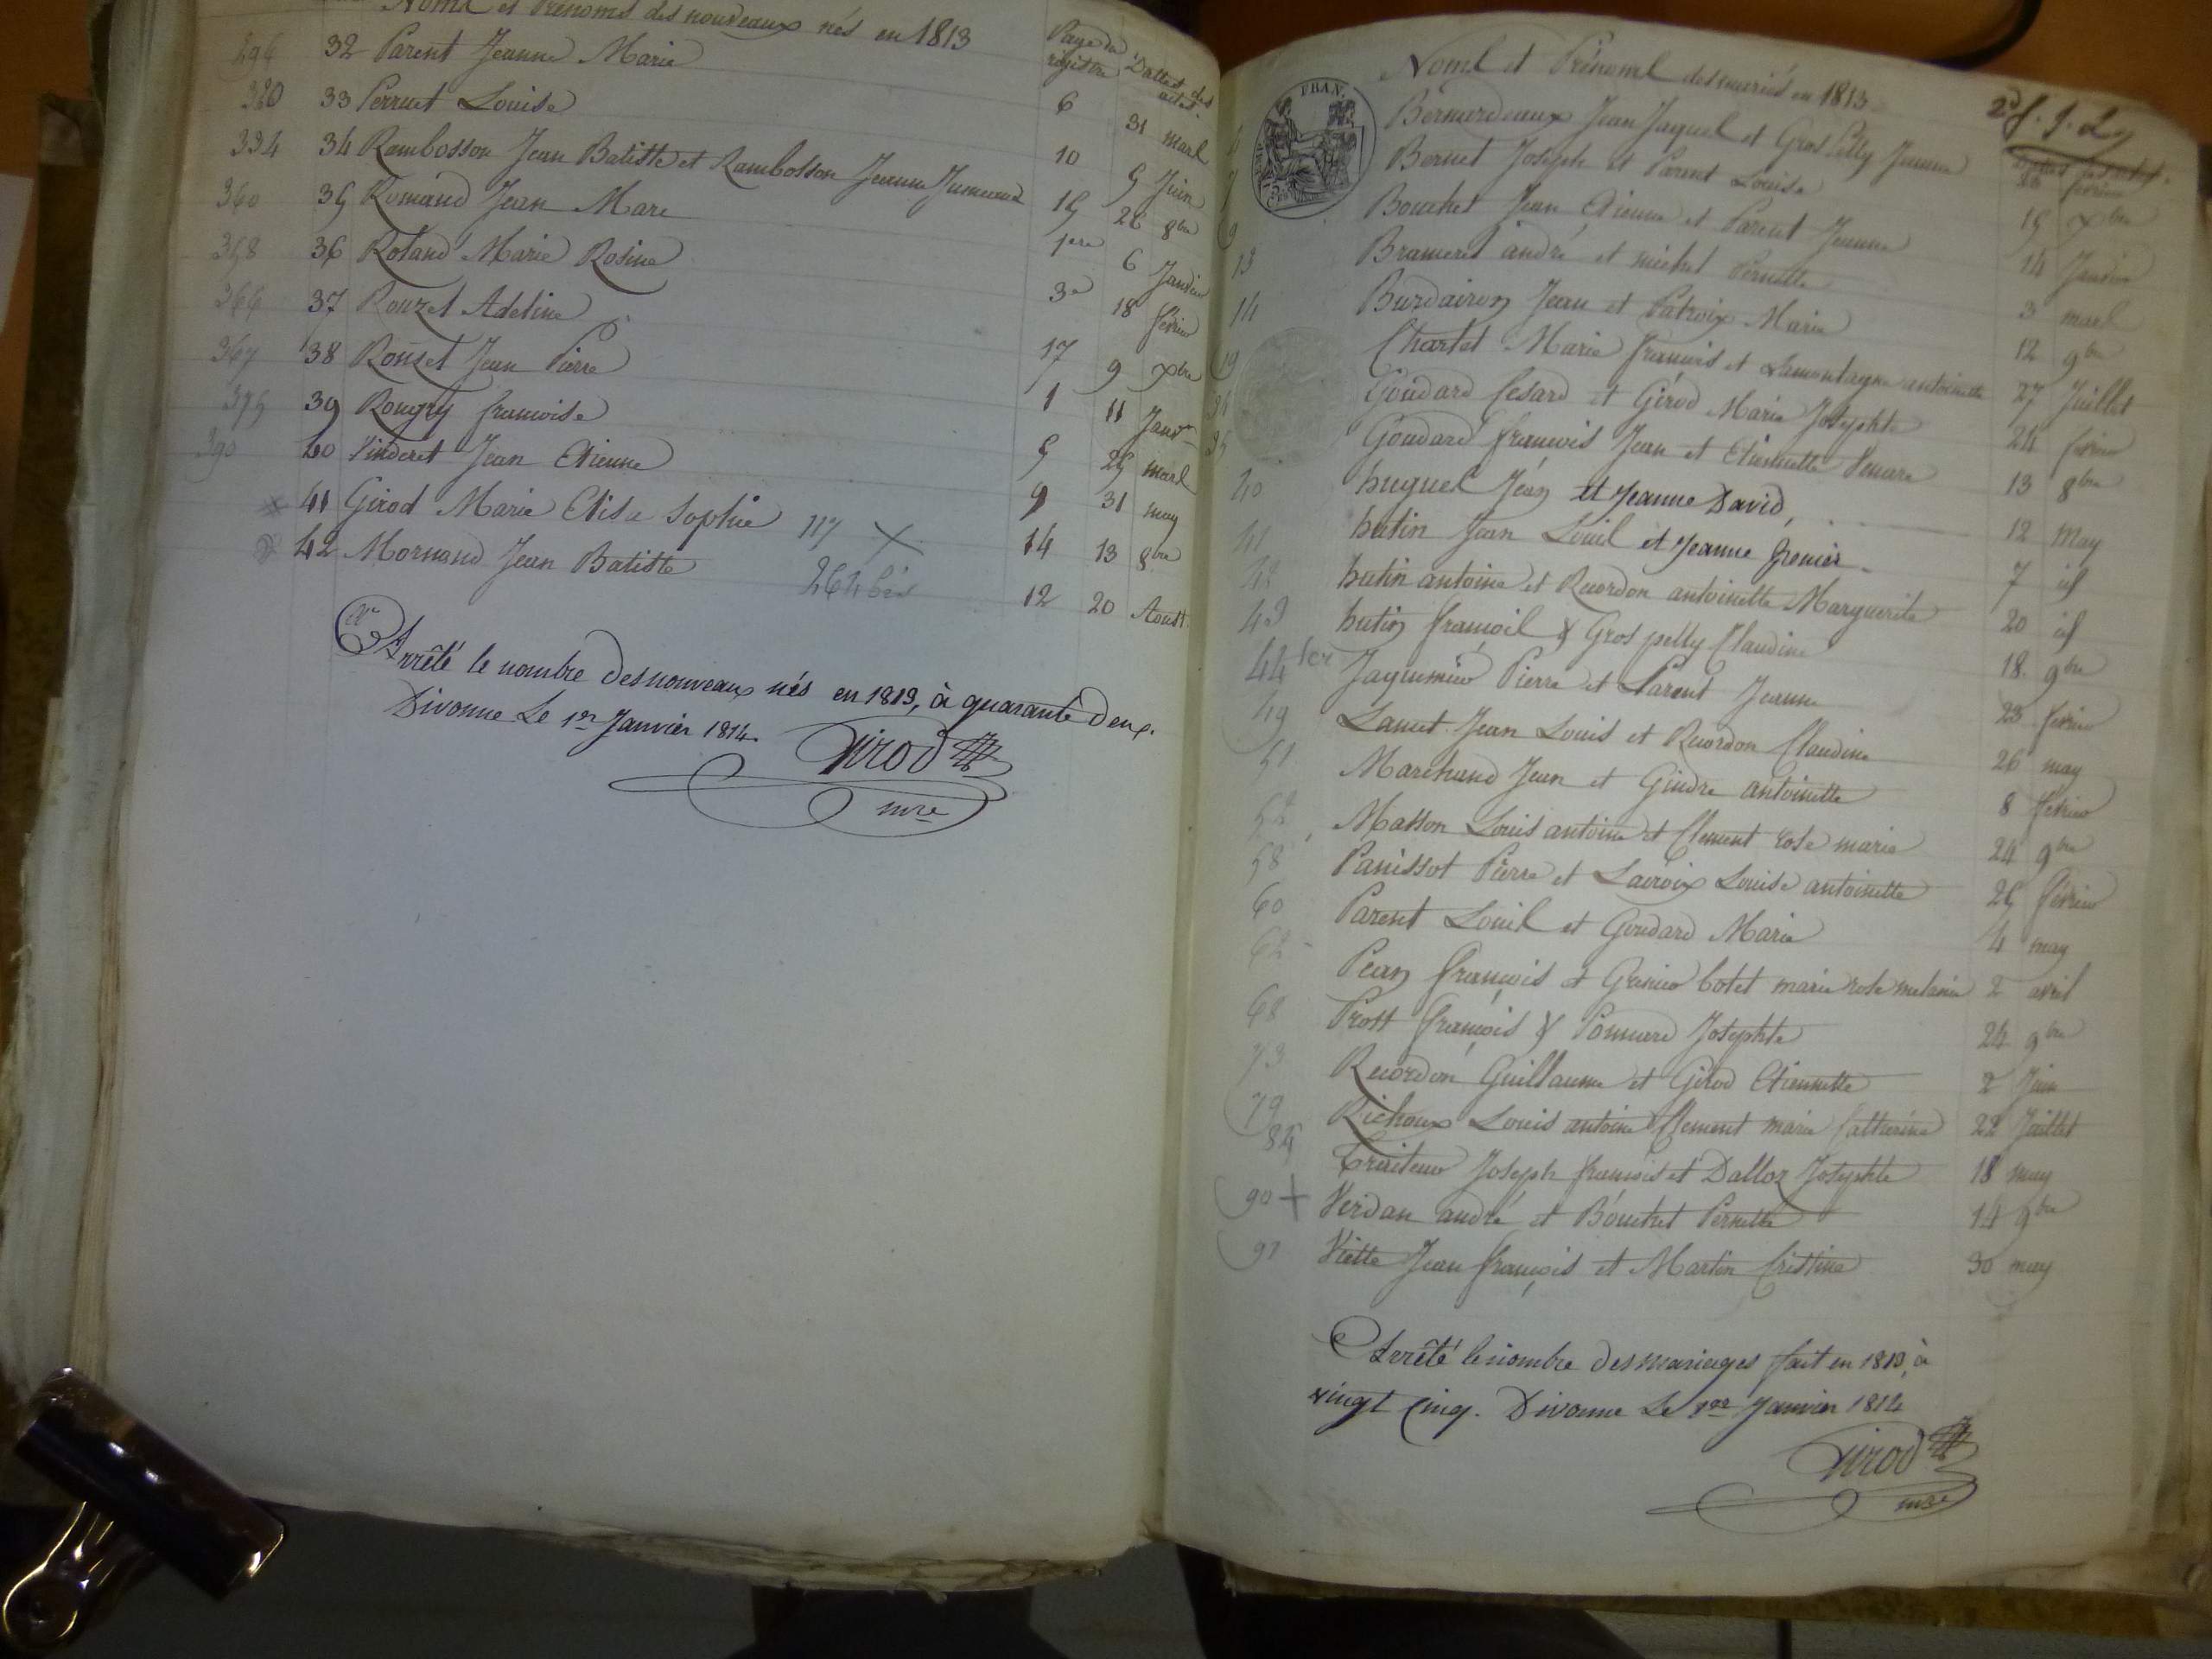 Noms et Prénoms des nouveaux nés en 1813 Page du registre Dattes des actes
296 32 Parent Jeanne Marie 6 31 mars
320 33 Perruet Louise 10 5 Juin
334 34 Rambosson Jean Batiste et Rambosson Jeanne Jumeaux 15 26 8bre
340 35 Romand Jean Marc 1ere 6 Janvier
358 36 Roland Marie Rosine 3e 18 février
366 37 Rouzet Adeline 17 9 xbre
367 38 Rouset Jean Pierre 1 11 Janvr
375 39 Rougey francoise 5 25 mars
390 40 Vinderet Jean Etienne 9 31 may
41 Girod Marie Elisa Sophie 117 14 13 8bre
42 Mornand Jean Batiste 264 bis 12 20 Aoust
Arrêté le nombre des nouveaux nés en 1813, à quarante deux.
Divonne Le 1er Janvier 1814.
Girod
mre
Noms et Prénoms des mariés en 1813
FRAN.
Bernardeaux Jean Jaques et Gros Pelly Jeanne février
Bernet Joseph et Parent Louise 15 xbre
9 Bouchet Jean Etienne et Parent Jeanne 14 Janvier
13 Brameret andré et michel Pernette 3 mars
14 Burdairon Jean et Patroix Marie 12 9bre
19 Chartet Marie françois et Lamontagne antoinette 27 Juillet
Goudard Cesard et Girod Marie Josephte 24 février
35 Goudard françois Jean et Etiennette Venare 13 8bre
40 huguet Jean et Jeanne David, 12 May
41 hutin Jean Louis et Jeanne Grenier 7 id
42 hutin antoine et Recordon antoinette Marguerite 20 id
43 hutin françois & Gros pelly Claudine 18 9bre
44 ter Jaquemier Pierre et Parent Jeanne 23 février
49 Lancet Jean Louis et Recordon Claudine 26 may
51 Marchand Jean et Gindre antoinette 8 février
52 Masson Louis antoine et Clement rose marie 24 9bre
58 Panissot Pierre et Lacroix Louise antoinette 25 février
60 Parent Louis et Goudard Marie 4 may
62 Pean françois et Grenier botet marie rose melanie 2 avril
68 Prost françois & Ponnard Josephte 24 9bre
73 Recordon Guillaume et Girod Etiennette 2 Juin
79 Richoux Louis antoine Clement marie Catherine 22 Juillet
85 Traiteur Joseph françois et Dalloz Josephte 18 may
90 + Verdan andré et Bouchet Pernette 14 9bre
91 Viette Jean françois et Martin Cristine 30 may
Arrêté le nombre des mariages fait en 1813, à
vingt Cinq. Divonne Le 1er Janvier 1814
Girod
mre